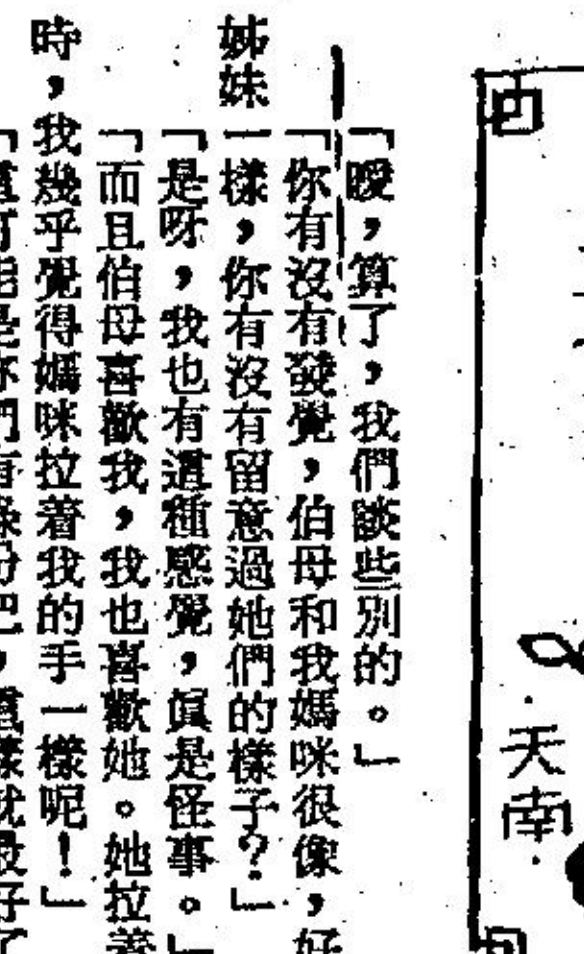 天南
「曖，算了，我們談些別的。」
「你有沒有發覺，伯母和我媽咪很像，好
姊妹一樣，你有沒有留意過她們的樣子？」
「是呀，我也有這種感覺，眞是怪事。」
「而且伯母喜歡我，我也喜歡她。她拉着
時，我幾乎覺得媽咪拉着我的手一樣呢！」